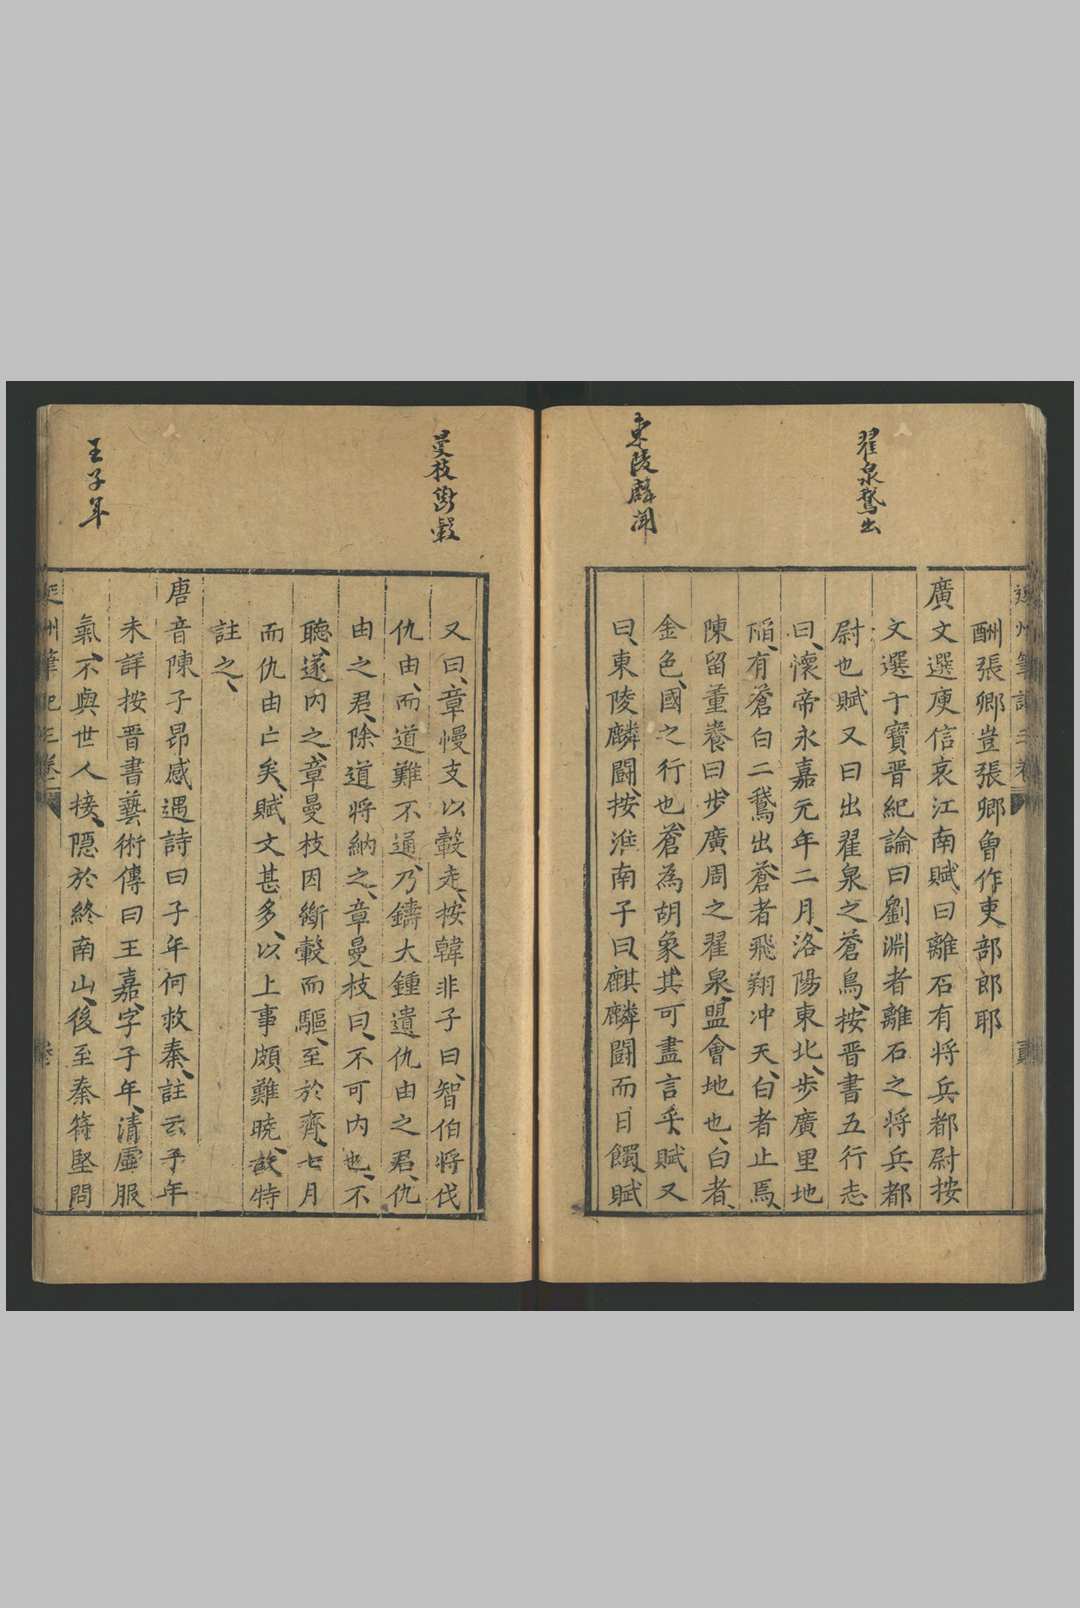 翟泉鵞出
東陵麟鬪
酬張卿豈張卿曾作吏部郎耶
廣文選庾信哀江南賦曰離石有將兵都尉按
文選于寶晋紀論曰劉淵者離石之將兵都
尉也賦又曰出翟泉之蒼鳥按晋書五行志
曰懷帝永嘉元年二月洛陽東北步廣里地
陷有蒼白二鵞出蒼者飛翔冲天白者止焉
陳留董養曰步廣周之翟泉盟會地也白者
金色國之行也蒼為胡象其可盡言乎賦又
曰東陵麟鬪按淮南子曰麒麟鬪而日饇賦
曼枝斷轂
王子年
又曰章慢支以轂走按韓非子曰智伯將伐
仇由而道難不通乃鑄大鍾遺仇由之君仇
由之君除道將納之章曼枝曰不可内也不
聽遂内之章曼枝因斷轂而驅至於齊七月
而仇由亡矣賦文甚多以上事頗難曉故特
註之
唐音陳子昂感遇詩曰子年何救秦註云子年
未詳按晋書藝術傳曰王嘉字子年清虛服
氣不與世人接隱於終南山後至秦符堅問
延州筆記三卷